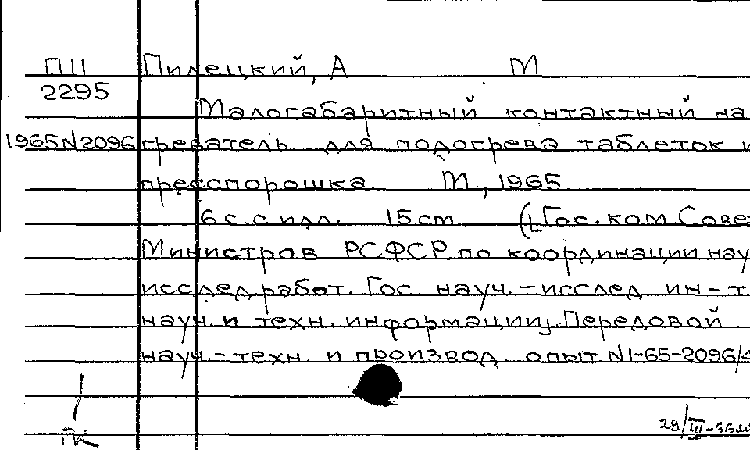 ПШ Пилецкий, А М
2295
Малогабаритный контактный на
1965N2096 греватель для подогрева таблеток и
пресспорошка М, 1965
6 с. с илл. 15 cm (Гос. ком Сове
Министров РСФСР по координации нау
исслед. работ. Гос науч.-исслед ин-т
науч. и техн. информации. Передовой
науч.-техн. и производ. опыт. N1-65-2096/
ПК